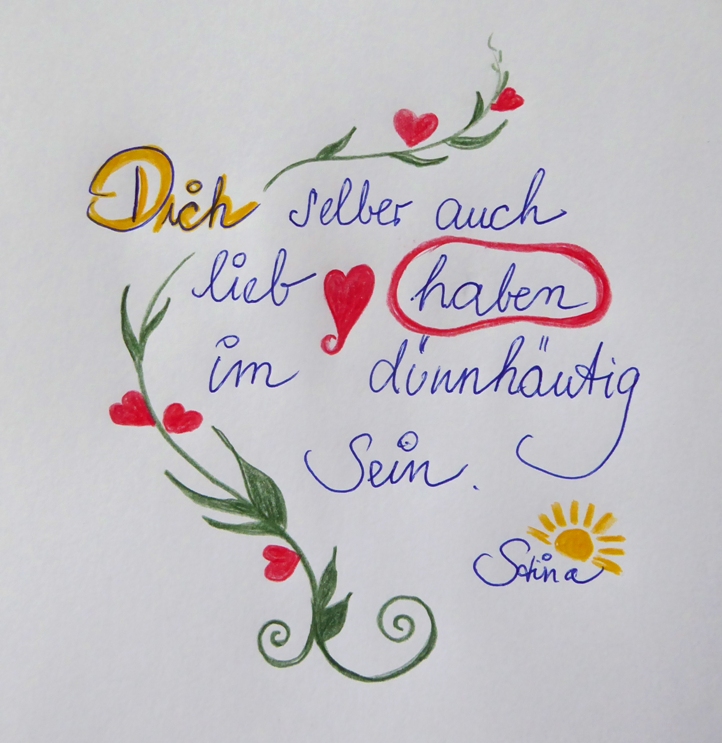 Dich selber auch
lieb haben
im dünnhäutig
Sein.